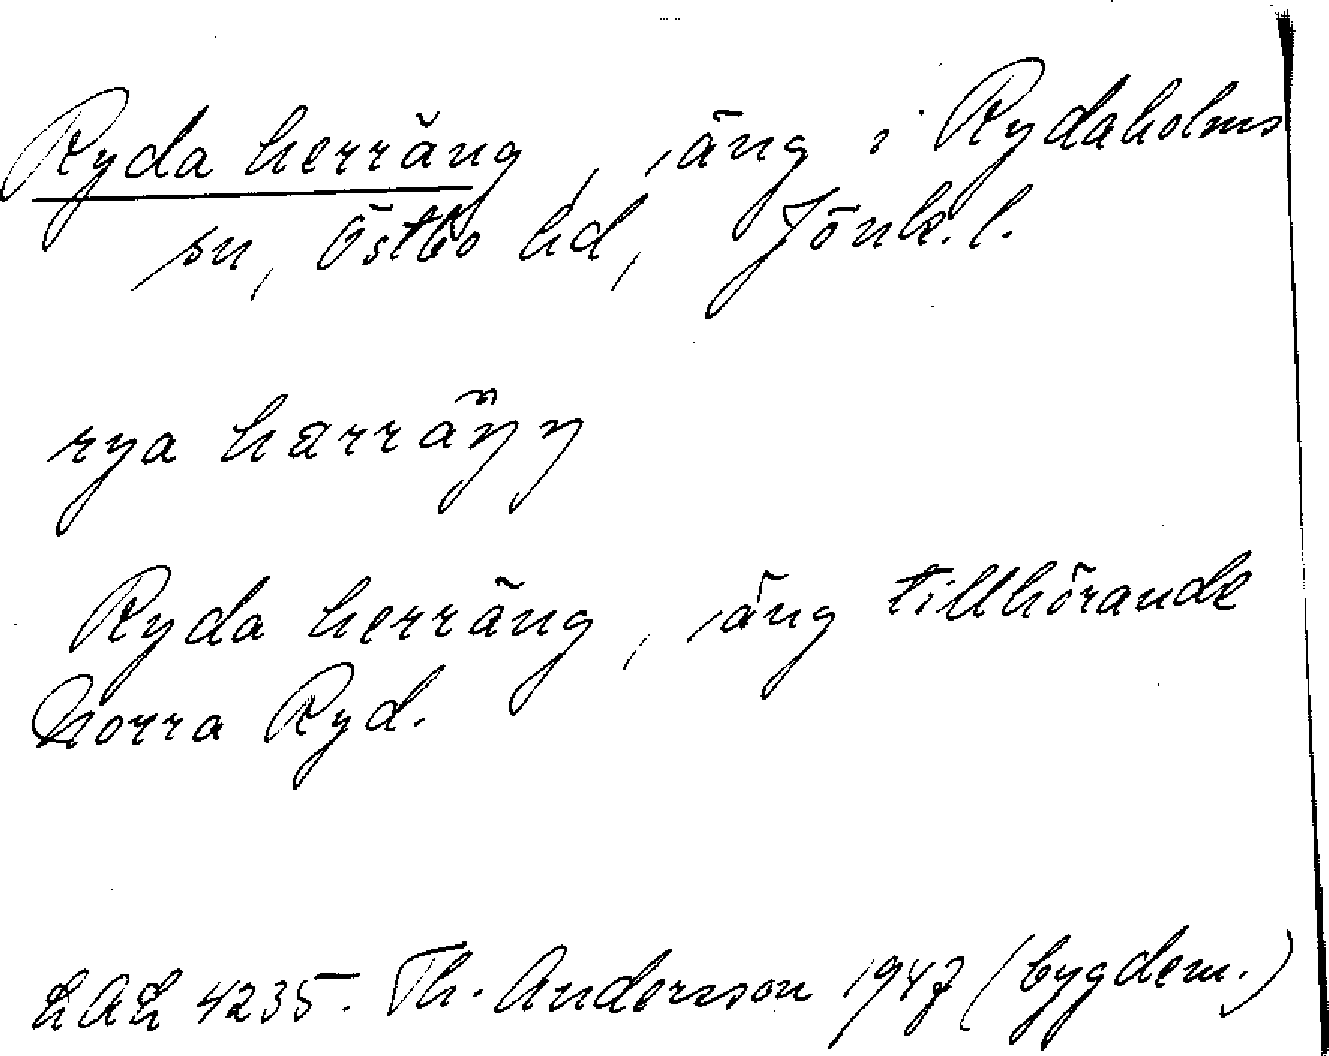 Ryda herräng, äng i Rydaholms
sn, Östbo hd, Jönk. l.
rya harräŋŋ
Ryda herräng, äng tillhörande
Norra Ryd.
LAL 4235. Th. Anderson 1947 (bygdem.)